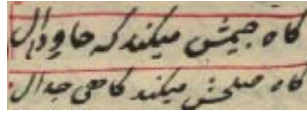 کاه جیمش میکند که حا و دال
کاه صلحش میکند کاهی جدال